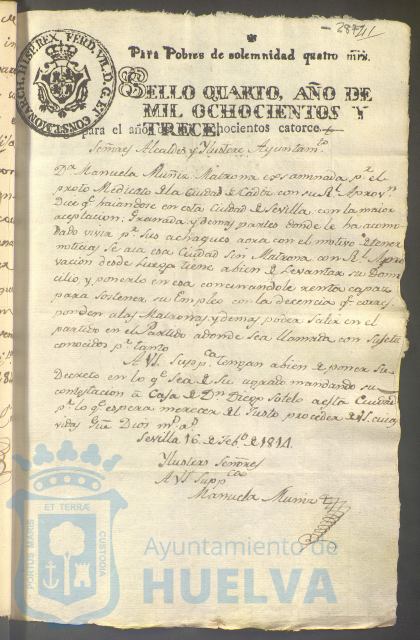 287/11
Para Pobres de solemnidad quatro mrs.
SELLO QUARTO, AÑO DE
MIL OCHOCIENTOS Y
TRECE.
para el año ochocientos catorce
HISP. REX, FERD. VII. D. G. ET CONST. MONARCH.
Señores Alcaldes y Ylustre Ayuntamto
Da Manuela Muñiz Matrona examinada pr el
proto Medicato de la Ciudad de Cádiz con su Rl Aprovn
Dice qe haiandose en esta Ciudad de Sevilla, con la maior
aceptacion; Granada y demas partes donde le ha acomo
dado vivir pr sus achaques aora con el motivo de tener
noticias Se aia esa Ciudad Sin Matrona con Rl Apro
vacion desde Luego tiene a bien de Levantar su Domi
cilio, y ponerlo en esa concurriendole renta capaz
para sostener su Empleo con la decencia qe corres
ponden a las Matronas y demas poder Salir en el
partido en el Partido adonde Sea llamada con Sujetos
conocidos pr tanto
A VS Suppca tengan a bien de poner Su
Decreto en lo qe Sea de Su agrado mandando su
contestacion a Casa de Dn Diego Sotelo a esta Ciudad
pr lo qe espera merecer del Justo proceder de VS. cuias
vidas Gue Dios ms as
Sevilla 16 de Febo de 1814.
Ylustres Señores
A VS Suppca
Manuela Muñiz
PORTUS MARIS ET TERRÆ CUSTODIA
Ayuntamiento de
HUELVA